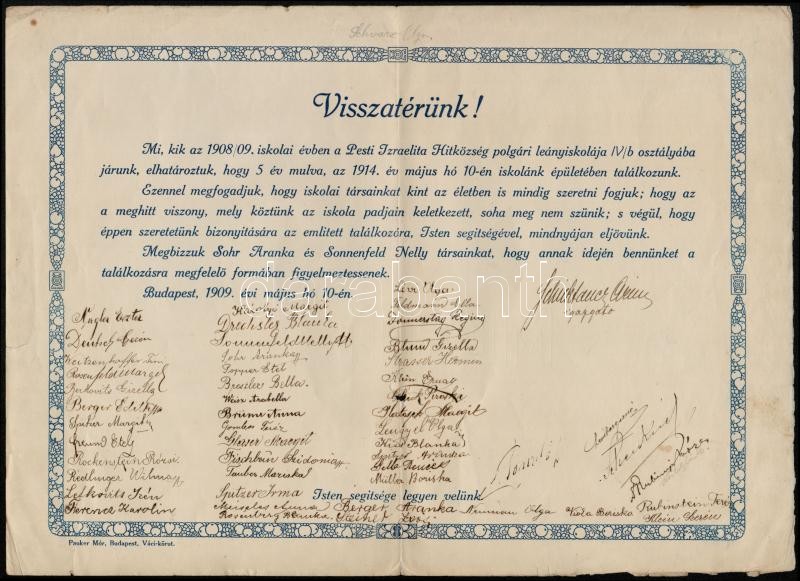 Schwarz Olga.
Visszatérünk!
Mi, kik az 1908/09. iskolai évben a Pesti Izraelita Hitközség polgári leányiskolája IV/b osztályába
járunk, elhatároztuk, hogy 5 év mulva, az 1914. év május hó 10-én iskolánk épületében találkozunk.
Ezennel megfogadjuk, hogy iskolai társainkat kint az életben is mindig szeretni fogjuk; hogy az
a meghitt viszony, mely köztünk az iskola padjain keletkezett, soha meg nem szünik; s végül, hogy
éppen szeretetünk bizonyitására az emlitett találkozóra, Isten segitségével, mindnyájan eljövünk.
Megbizzuk Sohr Aranka és Sonnenfeld Nelly társainkat, hogy annak idején bennünket a
találkozásra megfelelő formában figyelmeztessenek.
Budapest, 1909. évi május hó 10-én.
darabanth
Nágler Berta
Rosenfeld Margit
Berkovits Gizella
Berger Edith
Spitzer Margit
Freund Etel
Rockenstein Rózsi
Redlinger Vilma
Lefkovits Irén
Ferencz Karolin
Károlyi Margit
Drechsler Blanka
Sonnenfeld Nelly
Sohr Aranka
Popper Etel
Bressler Bella
Weisz Arabella
Brüme Anna
Gombos Teréz
Glieser Margit
Fischbein Szidonia
Tauber Mariska
Spitzer Irma
Lövi Olga
Feldmann Ella
Donnerstag Regina
Blum Gizella
Strasser Hermin
Klein Erna
Piroska
Margit
Lengyel Olga
Kiss Blanka
Spitzer Aranka
Müller Boriska
Isten segitsége legyen velünk.
Meiseles Anna Berger Aranka Neuman Olga Boriska Rubinstein Teréz
Rosenberg Blanka Klein Szerén
Pauker Mór, Budapest, Váci-körut.